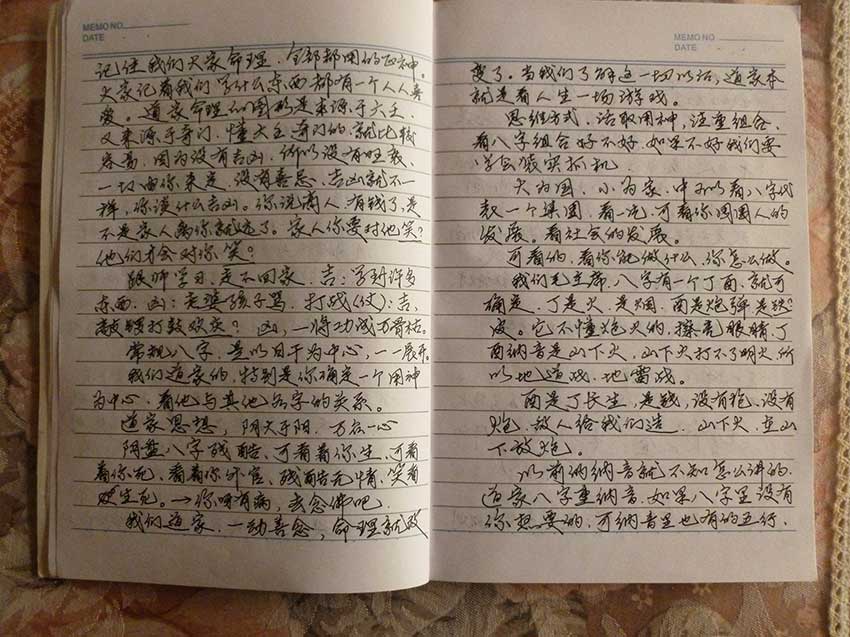 MEMO NO.
DATE
记住我们大家命理.全部都用的正神。
大家记着我们学什么东西都有一个人人喜
爱。道家命理和图形是来源于大壬
又来源于奇门.懂大壬奇门的.就比较
容易.因为没有吉凶.所以没有旺衰、
一切由你来定.没有喜忌.吉凶就不一
样,你谈什么吉凶。你说商人.有钱了,是
不是家人离你就远了。家人你要对他笑?
他们才会对你笑?
跟师学习.走不回家.吉:学到许多
东西.凶:老婆孩子骂.打战(仗):吉,
敲锣打鼓欢庆?凶,一将功成万骨枯。
常规八字.是以日干为中心,一一展开。
我们道家的,特别是你确定一个用神
为中心.看他与其他各字的关系。
道家思想,阴大于阳.万在一心
阴盘八字残酷、可看着你生,可看
着你死、看着你升官、残酷无情.笑看
众生死。→你哪有病,去念佛吧.
我们道家.一动善念,命理就改
MEMO NO.
DATE
变了。当我们了解这一切以后,道家本
就是看人生一场游戏。
思维方式.活取用神,注重组合.
看八字组合好不好.如果不好我们要
学会装实抓机
大为国.小为家.中可以看八字代
表一个集团.看一气.可看你周围人的
发展。看社会的发展。
可看的.看你能做什么.你怎么做。
我们毛主席.八字有一个丁酉、就可
确定.丁是火.是烟.酉是炮弹是铁?
皮。它不懂炮火的,擦亮眼睛.丁
酉纳音是山下火.山下火打不了明火.所
以地道战.地雷战。
酉是丁长生.是钱,没有枪.没有
炮.敌人给我们造.山下火.在山
下放炮。
以前的纳音就不知怎么讲的.
道家八字重纳音.如果八字里没有
你想要的.可纳音里也有的五行.